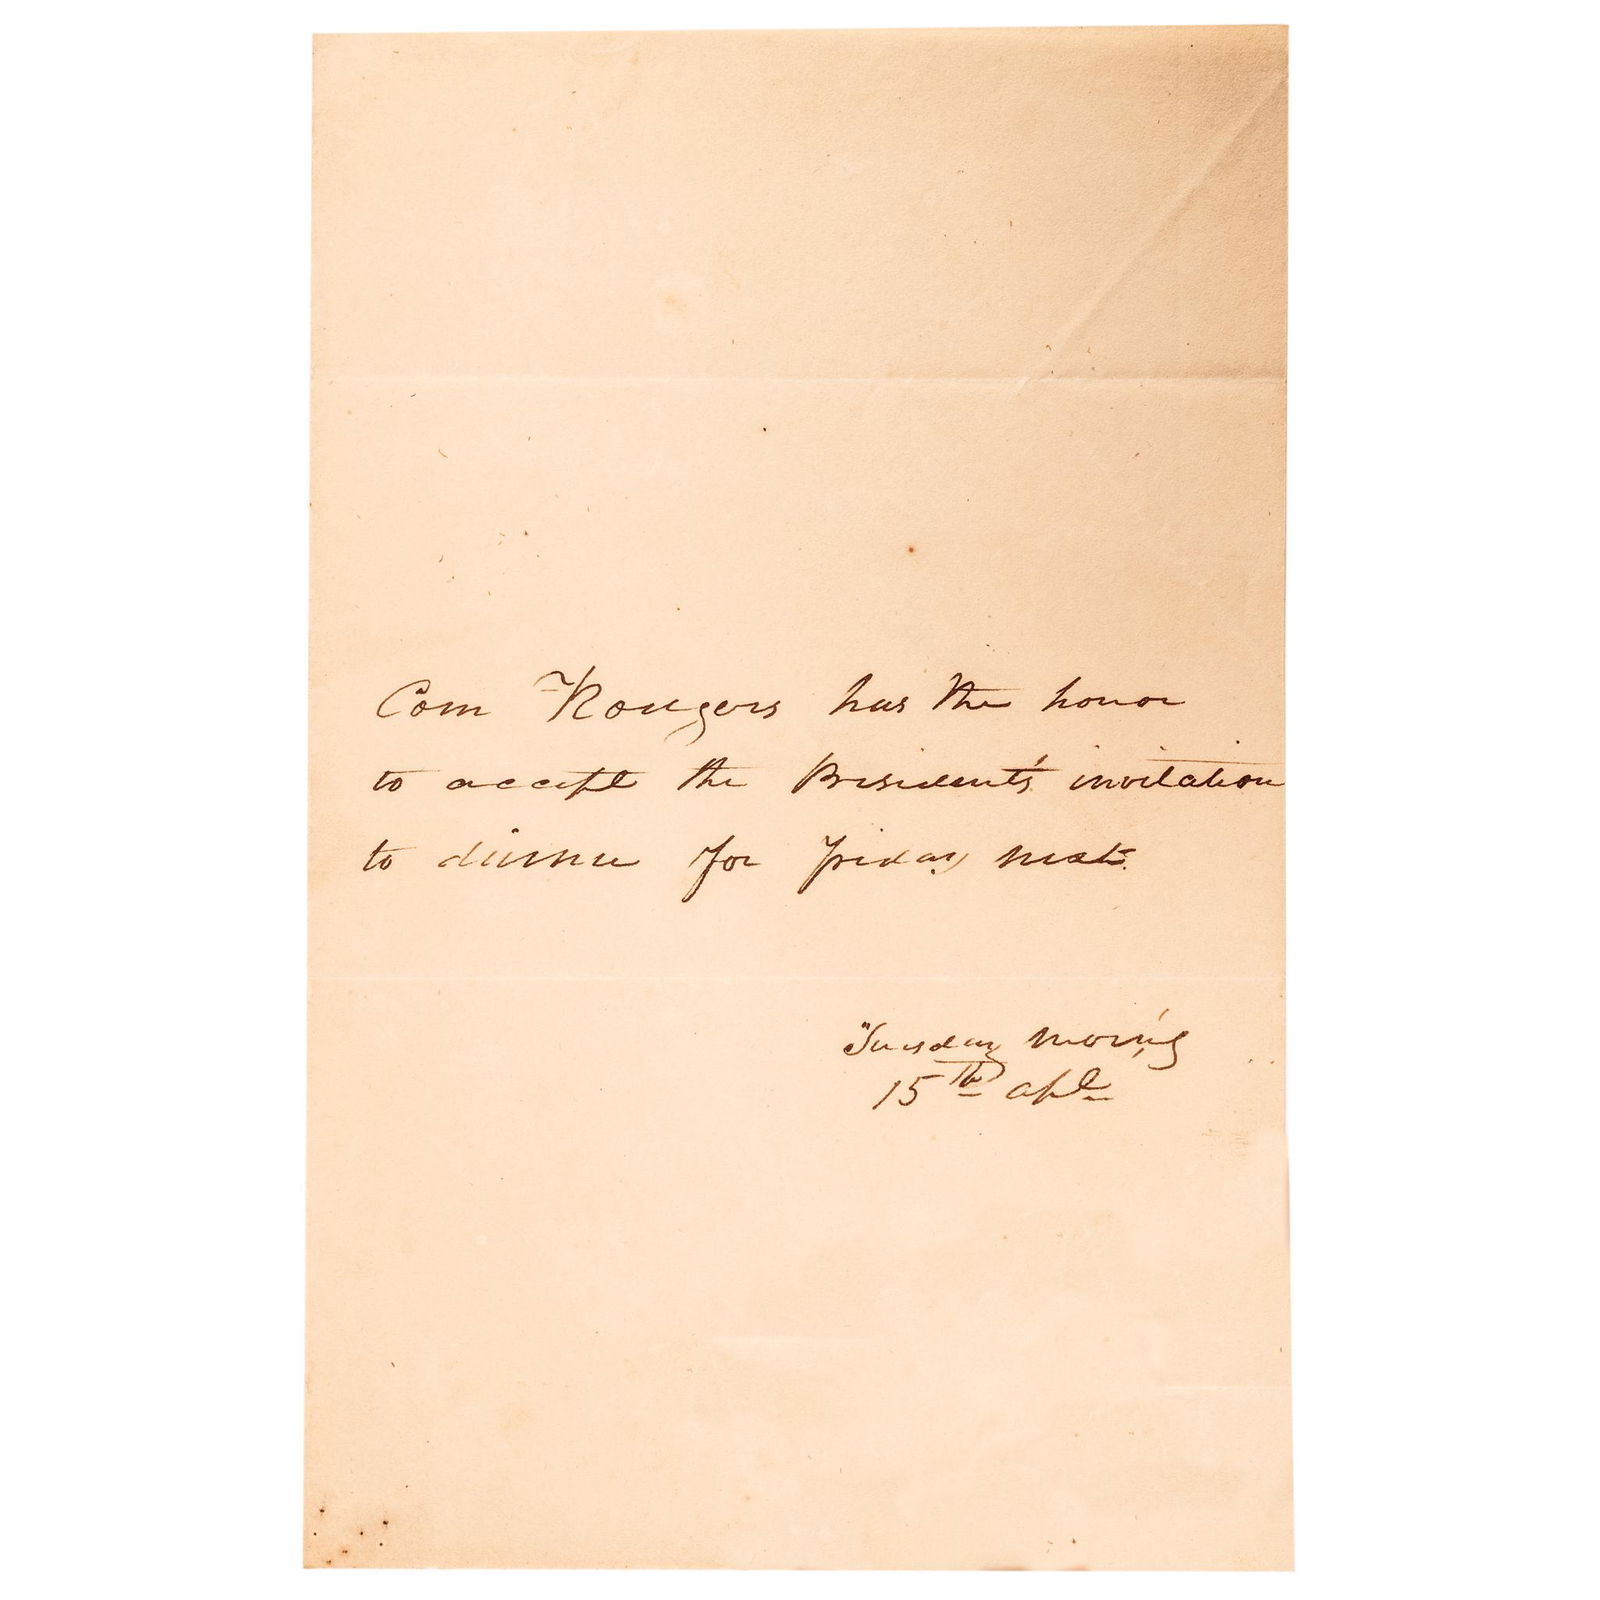 Com Rodgers has the honor
to accept the President's invitation
to dinner for Friday next.
Tuesday Morn'g
15th apl